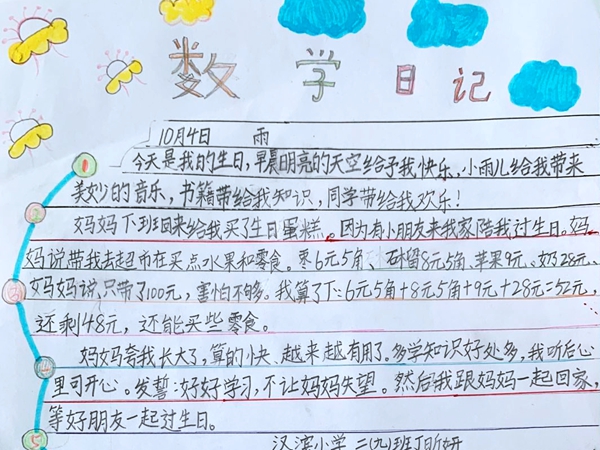 数学日记
10月4日 雨
今天是我的生日,早晨明亮的天空给予我快乐,小雨儿给我带来
美妙的音乐,书籍带给我知识,同学带给我欢乐!
妈妈下班回来给我买了生日蛋糕。因为有小朋友来我家陪我过生日。妈
妈说带我去超市在买点水果和零食。枣6元5角、石榴8元5角、苹果9元、奶28元、
妈妈说,只带了100元,害怕不够。我算了下:6元5角+8元5角+9元+28元=52元,
还剩48元,还能买些零食。
妈妈夸我长大了,算的快、越来越有用了。多学知识好处多,我听后心
里可开心。发誓:好好学习,不让妈妈失望。然后我跟妈妈一起回家,
等好朋友一起过生日。
汉滨小学 二(九)班 昕妍